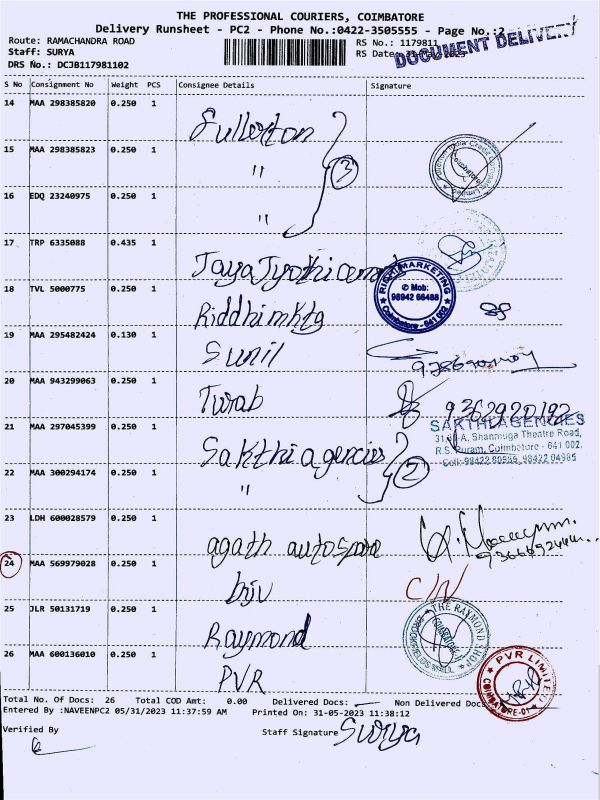 THE PROFESSIONAL COURIERS, COIMBATORE
Delivery Runsheet - PC2 - Phone No.:0422-3505555 - Page No.:2
DOCUMENT DELIVERY
Route: RAMACHANDRA ROAD
RS No.: 1179811
Staff: SURYA
RS Date: 31-May-2023
DRS No.: DCJB117981102
S No Consignment No Weight PCS Consignee Details Signature
14 MAA 298385820 0.250 1
Fullerton
15 MAA 298385823 0.250 1
" 3
16 EDQ 23240975 0.250 1
"
17 TRP 6335088 0.435 1
Jaya Jyothi cements
RIDDHI MARKETING
✆ Mob:
98942 66488
★ Coimbatore - 641 002. ★
18 TVL 5000775 0.250 1
Riddhi mktg
19 MAA 295482424 0.130 1
Sunil
20 MAA 943299063 0.250 1
Turab
9362920192
21 MAA 297045399 0.250 1
Sakthi agencies
SAKTHI AGENCIES
31, Shanmuga Theatre Road,
R.S. Puram, Coimbatore - 641 002.
Cell: 98422 80555, 98422 04985
22 MAA 300294174 0.250 1
" 2
23 LDH 600028579 0.250 1
agath autospare
24 MAA 569979028 0.250 1
bijv
C/N
25 JLR 50131719 0.250 1
Raymond
THE RAYMOND SHOP
BROOKEFIELDS MALL
COIMBATORE
26 MAA 600136010 0.250 1
PVR
PVR LIMITED
COIMBATORE-01
Total No. Of Docs: 26 Total COD Amt: 0.00 Delivered Docs: Non Delivered Docs
Entered By :NAVEENPC2 05/31/2023 11:37:59 AM Printed On: 31-05-2023 11:38:12
Verified By
Staff Signature Surya